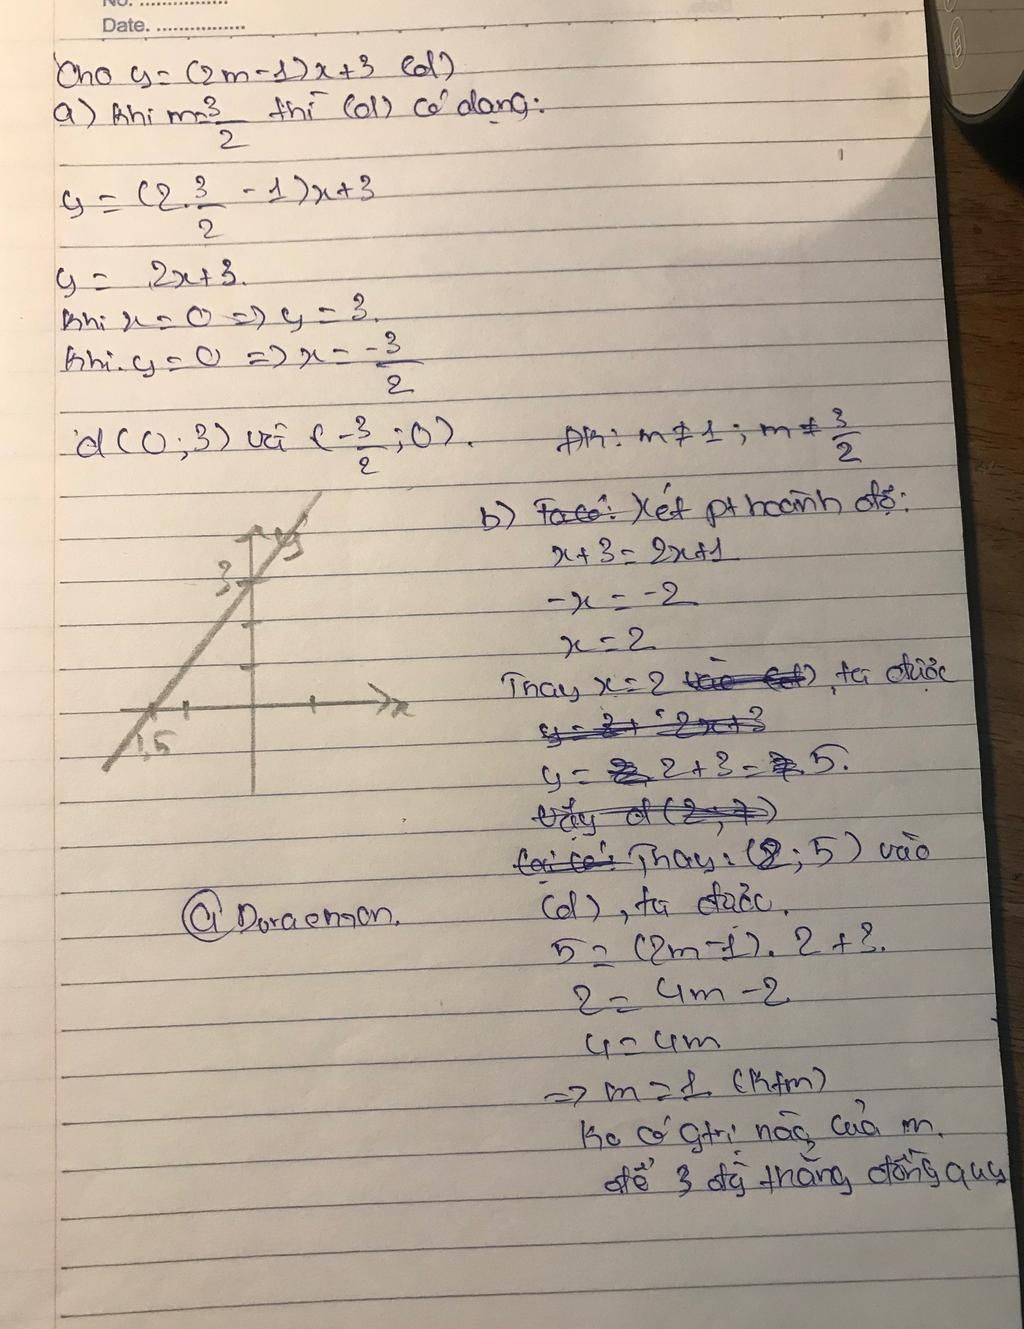 No. ................
Date. ................
Cho y = (2m-1)x+3 (d)
a) Khi m=3/2 thì (d) có dạng:
y = (2.3/2 - 1)x+3
y = 2x+3.
Khi x=0 => y = 3.
Khi y=0 => x = -3/2
d(0;3) và (-3/2;0).
y
3
x
1,5
@Doraemon.
ĐK: m≠1; m≠3/2
b) Ta có: Xét pt hoành độ:
x+3=2x+1
-x = -2
x=2
Thay x=2 vào (d), ta được
y=3+ 2x+3
y= 2+3= 5.
Vậy d(2;7)
Thay (2;5) vào
(d), ta được.
5 = (2m-1). 2 +3.
2 = 4m -2
4 = 4m
=> m=1 (Ktm)
Ko có gtrị nào của m.
để 3 đg thẳng đồng quy